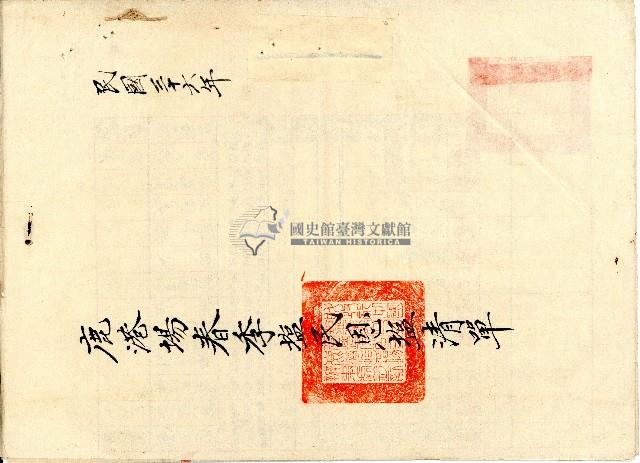 民國三十六年
國史館臺灣文獻館
TAIWAN HISTORICA
鹿港場春季塩民恩塩清單